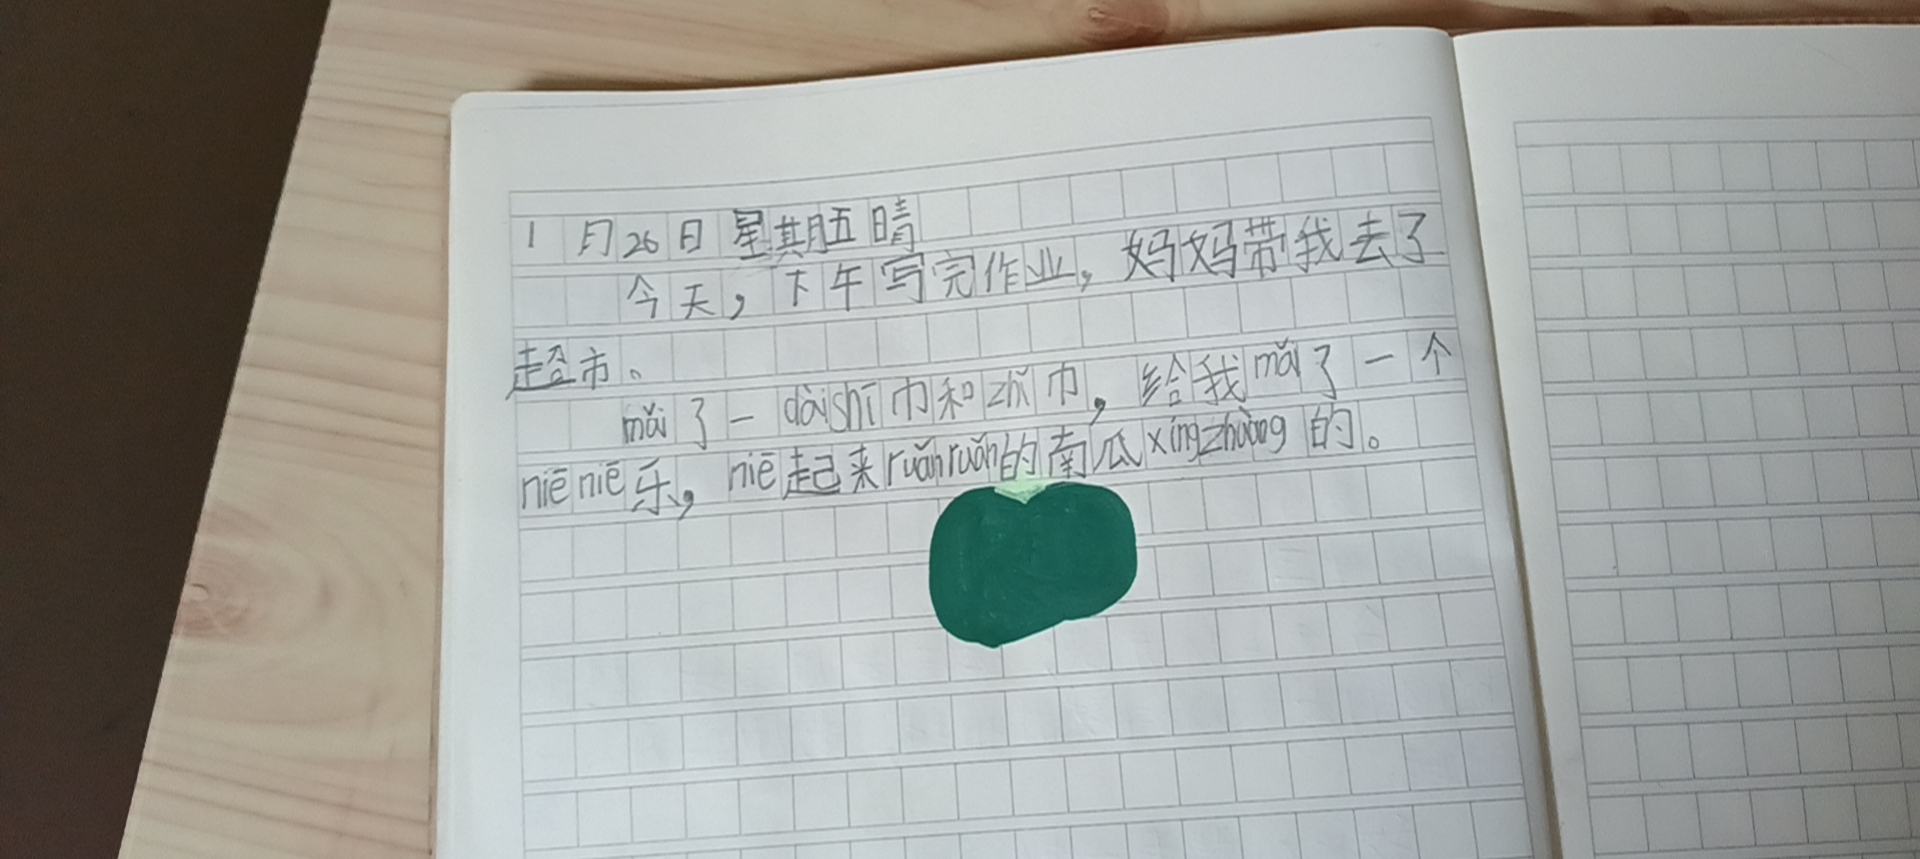 1月26日 星期五 晴
今天，下午写完作业，妈妈带我去了
超市。
mǎi了一dàishī巾和zhǐ巾，给我mǎi了一个
niēniē乐，niē起来ruǎnruǎn的南瓜xíngzhuàng的。